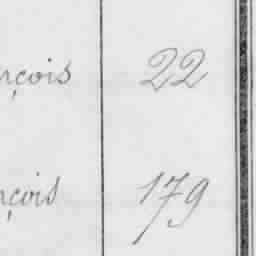 nçois 22
nçois 179